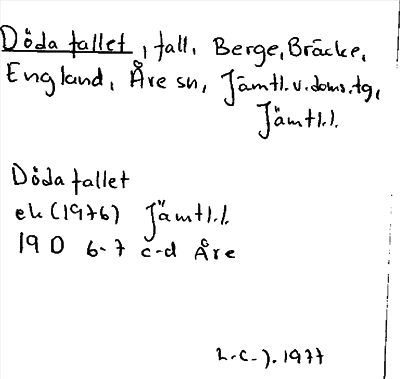 Döda fallet, fall, Berge, Bräcke,
England, Åre sn, Jämtl.v.doms.tg,
Jämtl.l.
Döda fallet
ek (1976) Jämtl.l.
19 D 6-7 c-d Åre
1977